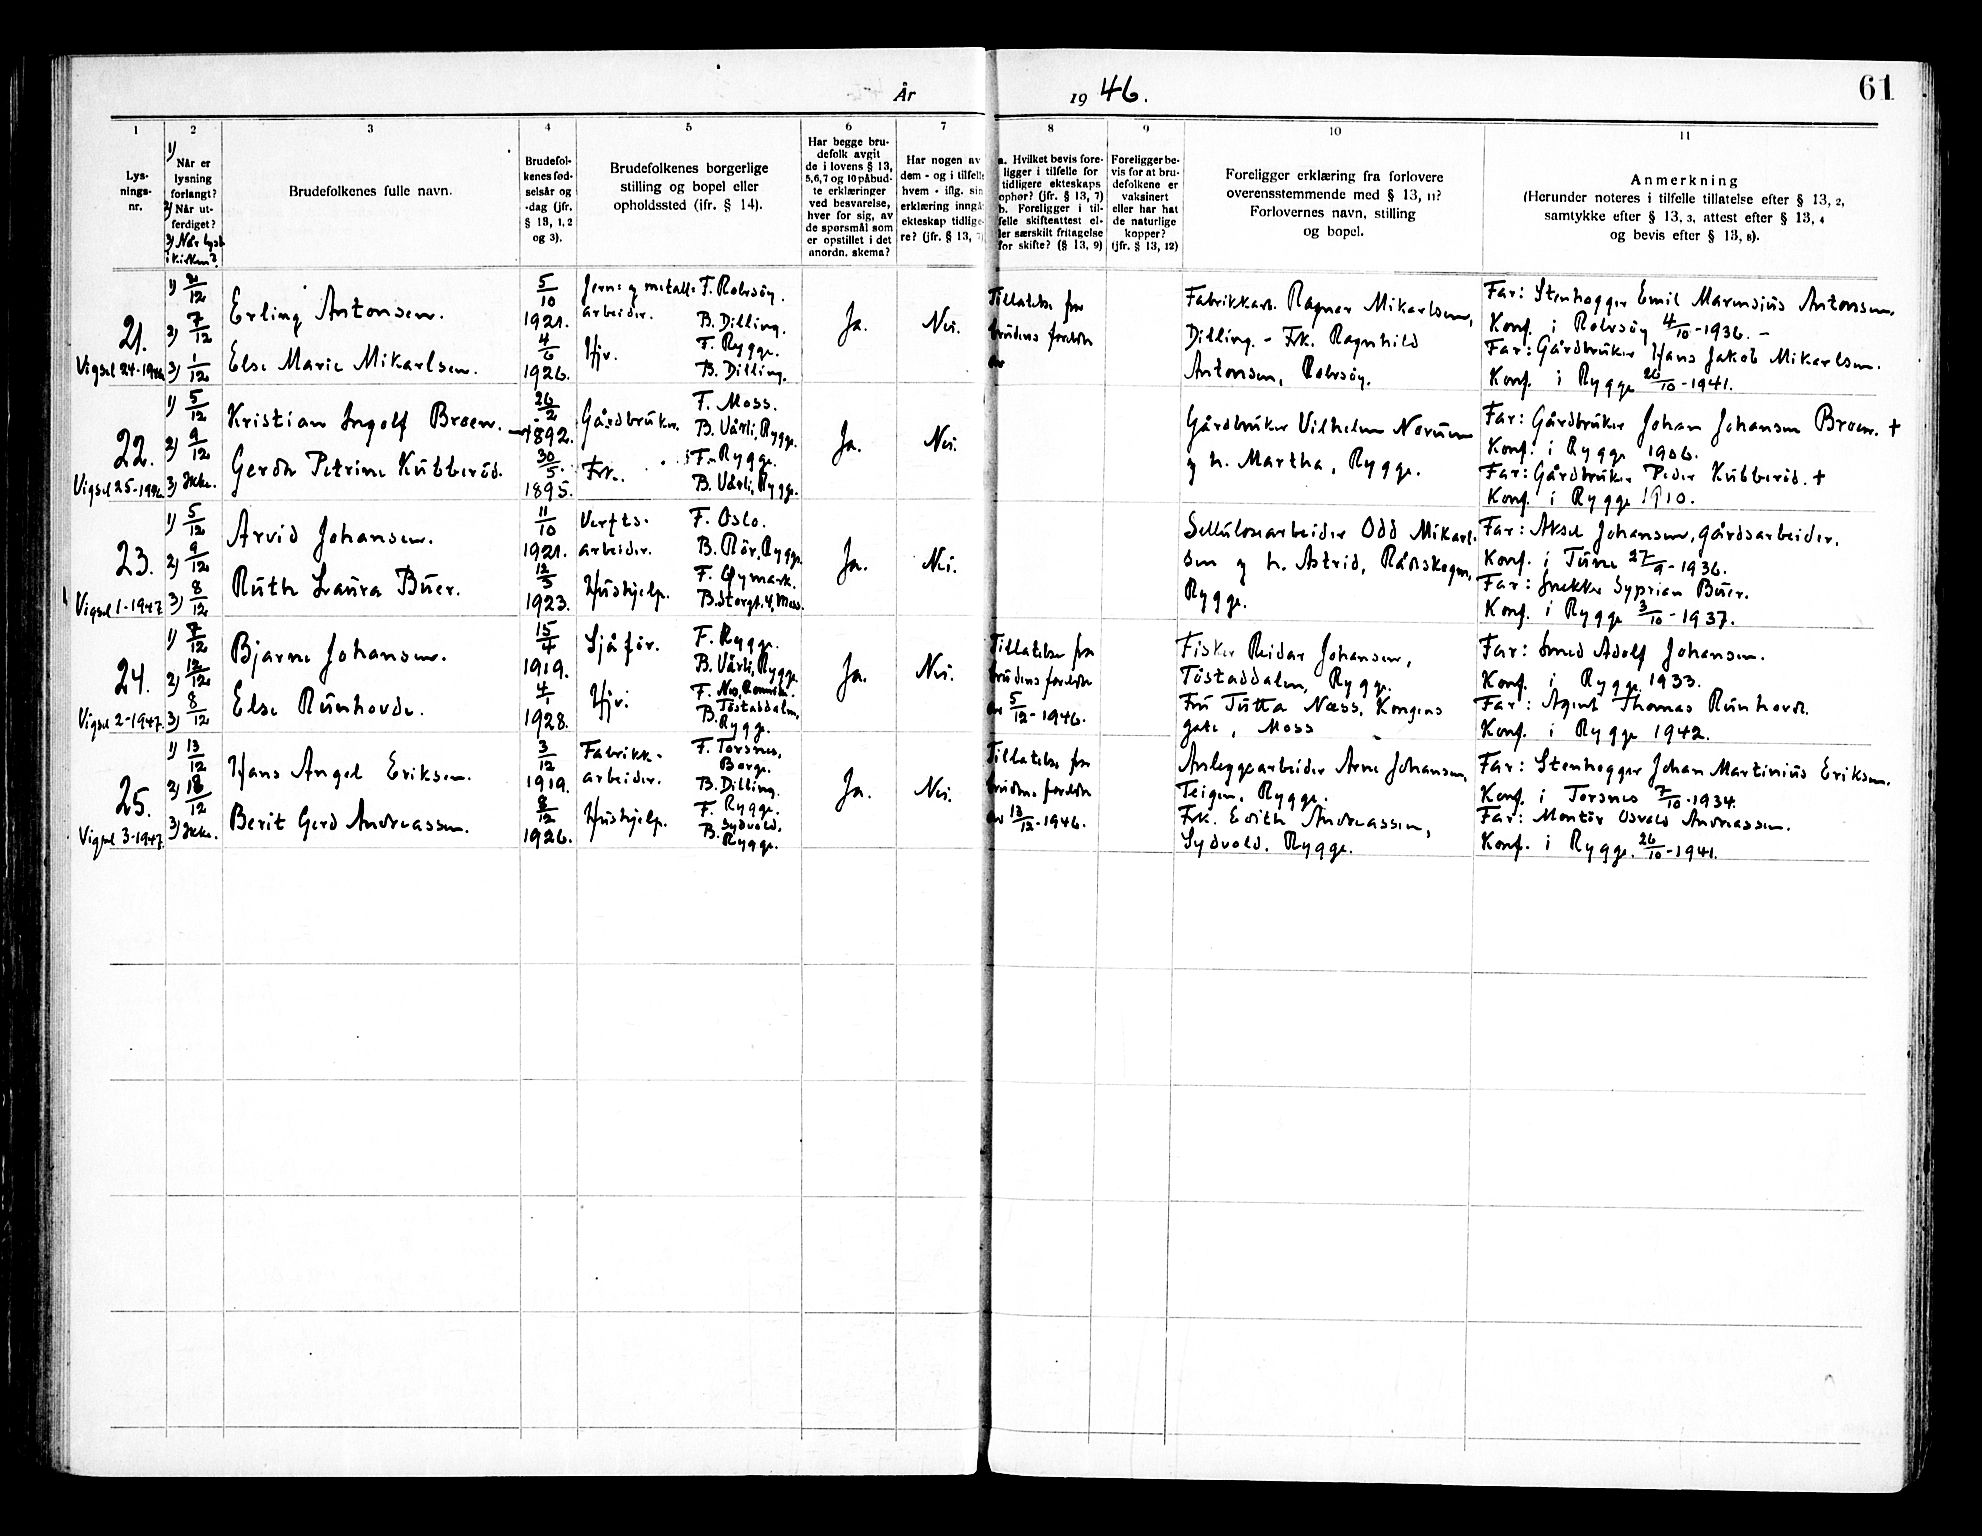 År 1946.
61
1
2
3
4
5
6
7
8
9
10
11
Lys-
nings-
nr.
1)
Når er
lysning
forlangt?
2)
Når ut-
ferdiget?
3) Når lyst
i kirken?
Brudefolkenes fulle navn.
Brudefol-
kenes fød-
selsår og
-dag (jfr.
§ 13, 1, 2
og 3).
Brudefolkenes borgerlige
stilling og bopel eller
opholdssted (ifr. § 14).
Har begge bru-
defolk avgit
de i lovens § 13,
5,6,7 og 10 påbud-
te erklæringer
ved besvarelse,
hver for sig, av
de spørsmål som
er opstillet i det
anordn. skema?
Har nogen av
dem - og i tilfelle
hvem - iflg. sin
erklæring inngå
ekteskap tidlige-
re? (jfr. § 13, 7)
a. Hvilket bevis fore-
ligger i tilfelle for
tidligere ekteskaps
ophør? (jfr. § 13, 7)
b. Foreligger i til-
felle skifteattest el-
ler særskilt fritagelse
for skifte? (§ 13, 9)
Foreligger be-
vis for at bru-
defolkene er
vaksinert
eller har hat
de naturlige
kopper?
(jfr. § 13, 12)
Foreligger erklæring fra forlovere
overensstemmende med § 13, 11?
Forlovernes navn, stilling
og bopel.
Anmerkning
(Herunder noteres i tilfelle tillatelse efter § 13, 2,
samtykke efter § 13, 3, attest efter § 13, 4
og bevis efter § 13, 8).
21.
Vigsel 24-1946
1) 2/12
2) 7/12
3) 1/12
Erling Antonsen.
Else Marie Mikarlsen.
5/10
1921.
4/6
1926.
Jern- og metall- F. Rolvsøy.
arbeider. B. Dilling.
Hjv. F. Rygge.
B. Dilling.
Ja.
Nei.
Tillatelse fra
brudens foreldre
av
Fabrikkarb. Ragnar Mikarlsen,
Dilling. - Frk. Ragnhild
Antonsen, Rolvsøy.
Far: Stenhogger Emil Marensius Antonsen.
Konf. i Rolvsøy 4/10-1936. -
Far: Gårdbruker Hans Jakob Mikarlsen.
Konf. i Rygge 26/10-1941.
22.
Vigsel 25-1946.
1) 5/12
2) 9/12
3) Ikke.
Kristian Ingolf Broen.
Gerda Petrine Kubberød.
26/2
1892.
30/5
1895.
Gårdbruker. F. Moss.
B. Vårli, Rygge.
Frk. F. Rygge.
B. Vårli, Rygge.
Ja.
Nei.
Gårdbruker Vilhelm Norum
og h. Martha, Rygge.
Far: Gårdbruker Johan Johansen Broen. †
Konf. i Rygge 1906.
Far: Gårdbruker Peder Kubberød. †
Konf. i Rygge 1910.
23.
Vigsel 1-1947.
1) 5/12
2) 9/12
3) 8/12
Arvid Johansen.
Ruth Laura Buer.
11/10
1921.
12/5
1923.
Verfts- F. Oslo.
arbeider. B. Rör, Rygge.
Hushjelp. F. Øymark.
B. Storgt. 4, Moss.
Ja.
Nei.
Sellulosearbeider Odd Mikarl-
sen og h. Astrid, Rådskogen,
Rygge.
Far: Aksel Johansen, gårdsarbeider.
Konf. i Tune 27/9-1936.
Far: Snekker Syprian Buer.
Konf. i Rygge 3/10-1937.
24.
Vigsel 2-1947.
1) 7/12
2) 12/12
3) 8/12
Bjarne Johansen.
Else Runhovde.
15/4
1919.
4/1
1928.
Sjåfør. F. Rygge.
B. Vårli, Rygge.
Hjv. F. Nes, Romerike.
B. Töstaddalen,
Rygge.
Ja.
Nei.
Tillatelse fra
brudens foreldre
av 5/12-1946.
Fisker Reidar Johansen,
Töstaddalen, Rygge.
Fru Tutta Næss, Kongens
gate, Moss
Far: Smed Adolf Johansen.
Konf. i Rygge 1933.
Far: Agent Thomas Runhovde.
Konf. i Rygge 1942.
25.
Vigsel 3-1947.
1) 13/12
2) 18/12
3) Ikke.
Hans Angel Eriksen.
Berit Gerd Andreassen.
3/12
1919.
8/12
1926.
Fabrikk- F. Torsnes,
Borge.
arbeider. B. Dilling.
Hushjelp. F. Rygge.
B. Sydvold,
Rygge.
Ja.
Nei.
Tillatelse fra
brudens foreldre
av 13/12-1946.
Anleggsarbeider Arne Johansen,
Teigen, Rygge.
Frk. Edith Andreassen,
Sydvold, Rygge.
Far: Stenhogger Johan Martinius Eriksen.
Konf. i Torsnes 7/10-1934.
Far: Montör Osvald Andreassen.
Konf. i Rygge. 26/10-1941.